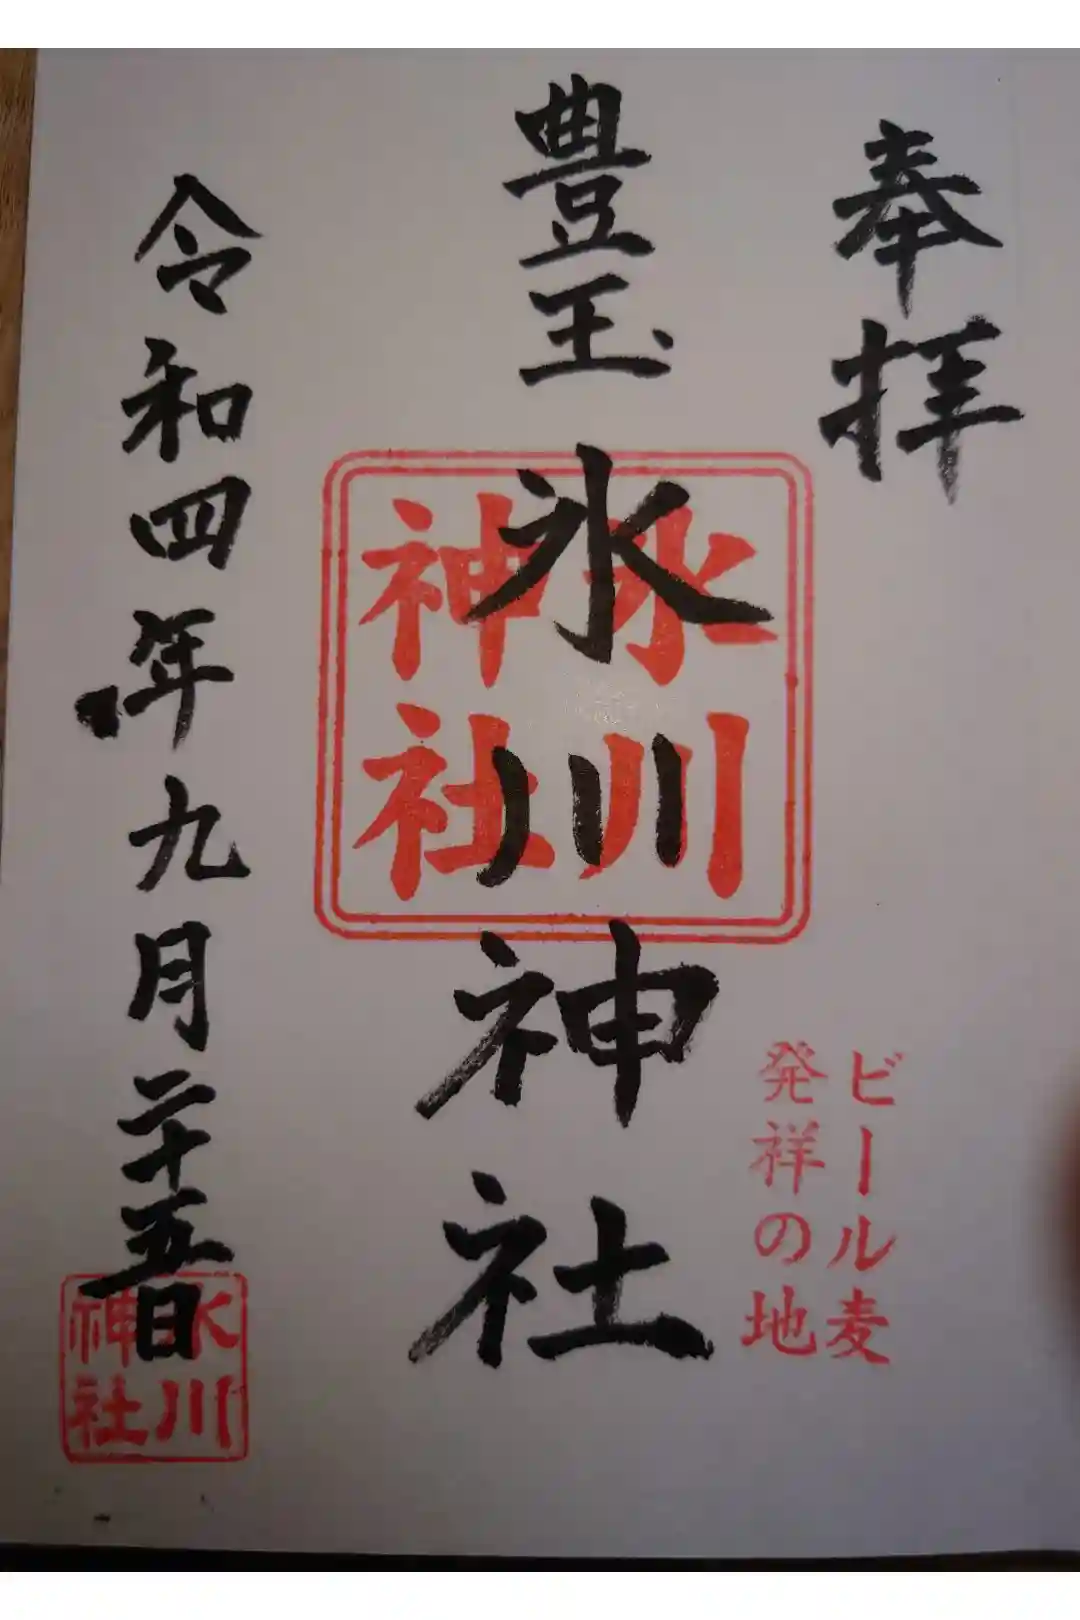 奉拝
ビール麦
発祥の地
豊玉氷川神社
氷川
神社
令和四年九月二十五日
氷川
神社